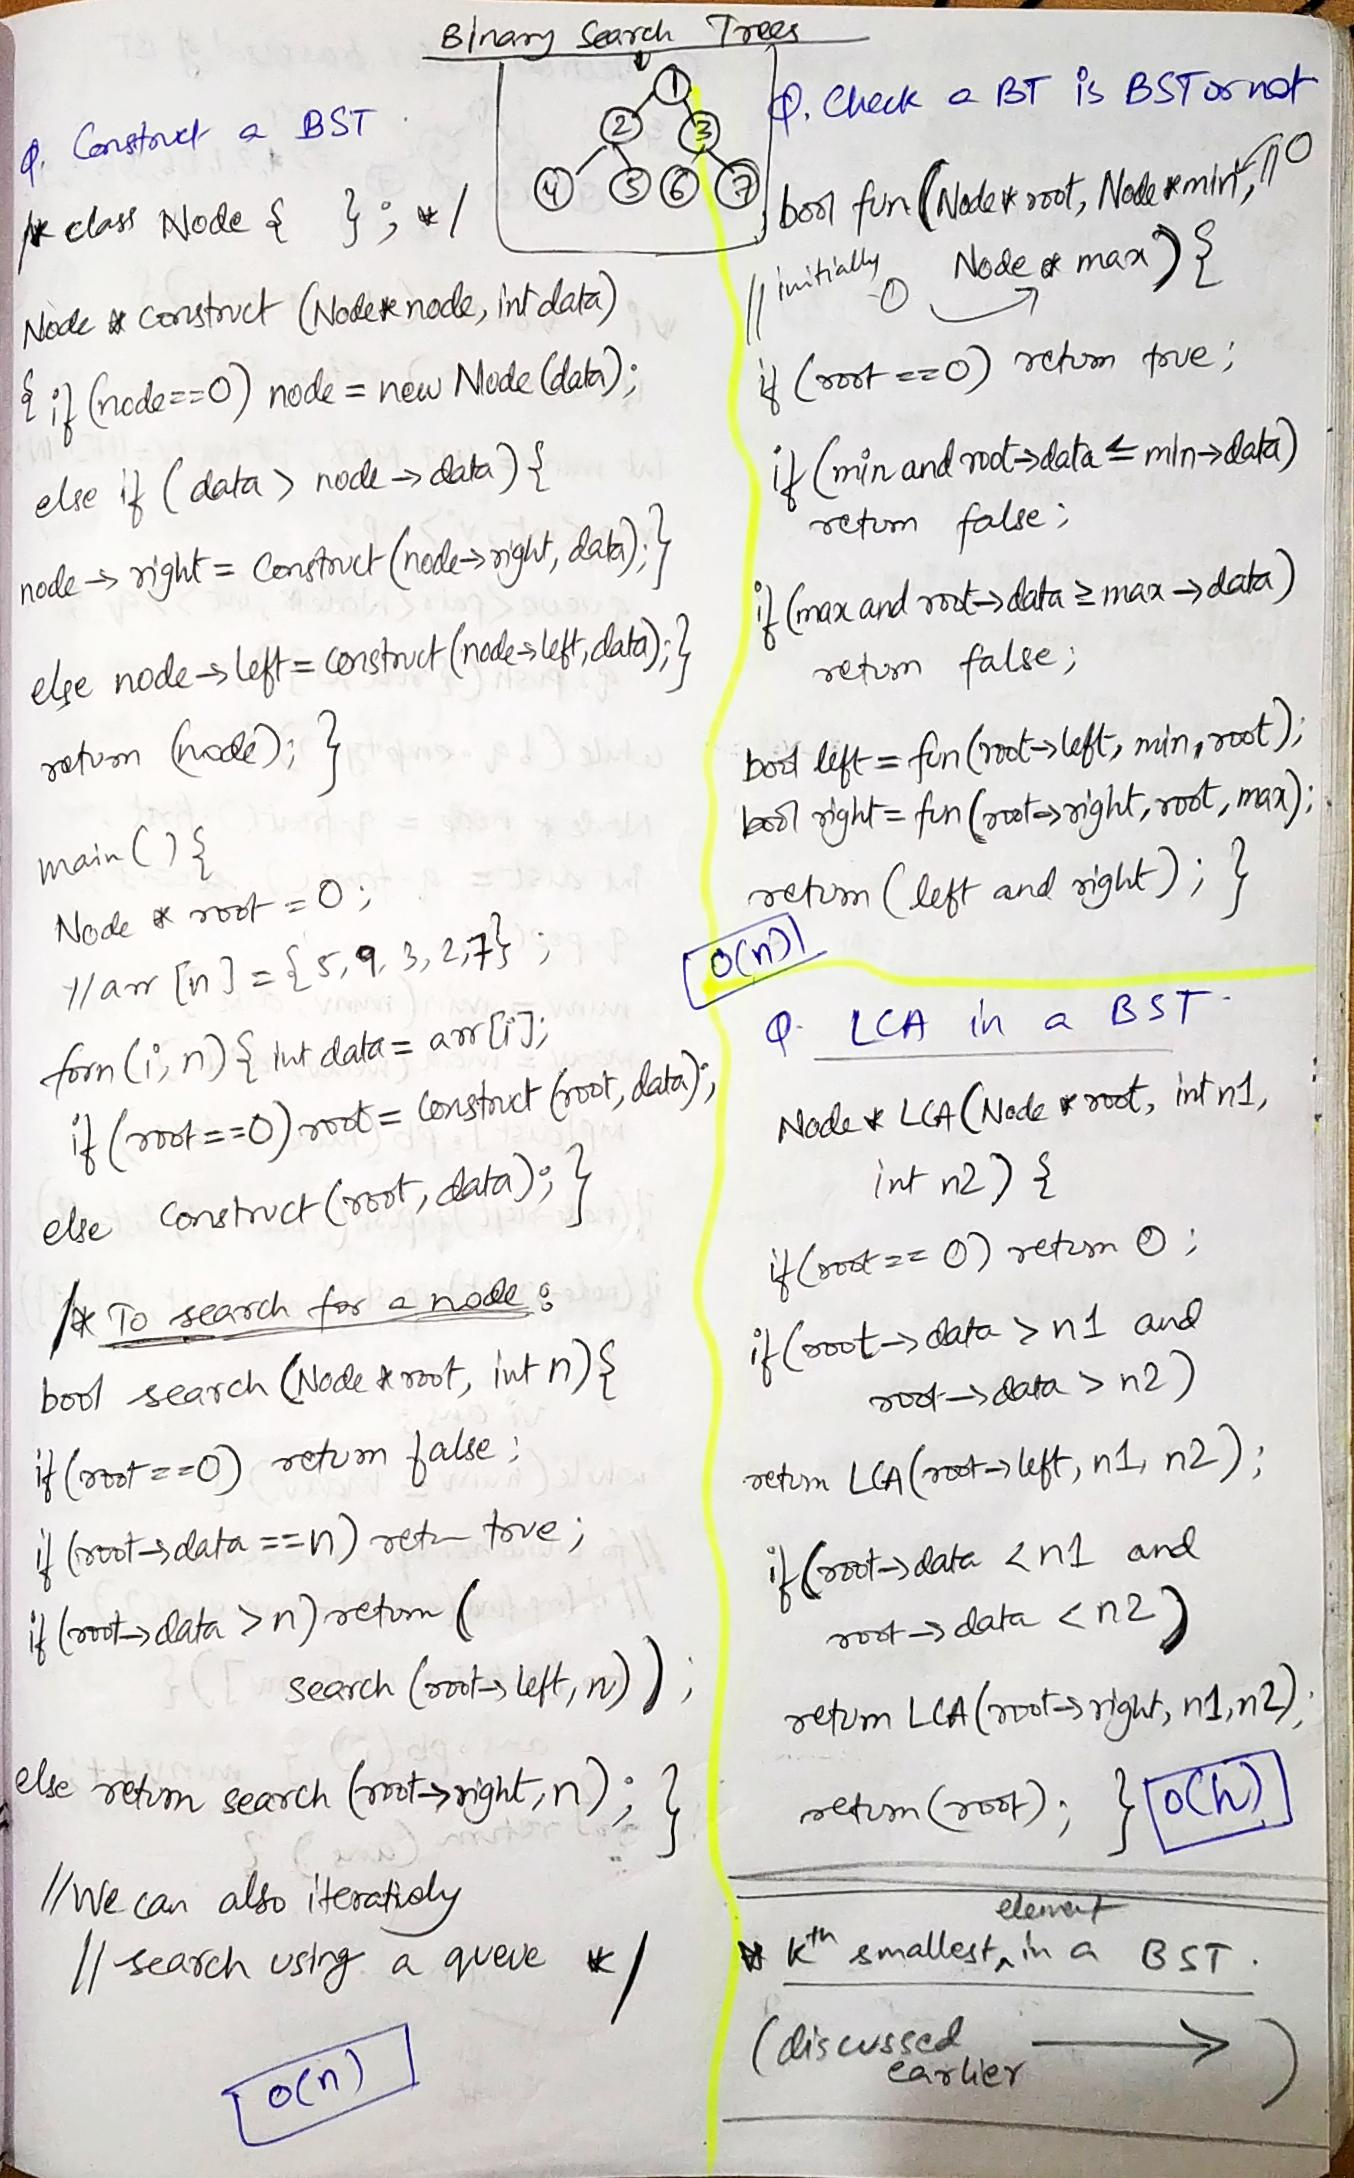 Binary Search Trees
1
2 3
4 5 6 7
Q. Construct a BST
/* class Node { }; */
Node * construct (Node* node, int data)
{ if (node==0) node = new Node (data);
else if ( data > node → data) {
node → right = Construct (node→right, data);}
else node→left = construct (node→left, data);}
return (node); }
main() {
Node * root = 0;
// arr [n] = {5, 9, 3, 2, 7};
forn (i, n) { int data = arr[i];
if (root==0) root = Construct (root, data);
else Construct (root, data); }
/* To search for a node :
bool search (Node * root, int n) {
if (root==0) return false;
if (root→data ==n) retn true;
if (root→data >n) return (
search (root→left, n));
else return search (root→right, n); }
// We can also iteratively
// search using a queue */
O(n)
Q. Check a BT is BST or not
bool fun (Node* root, Node *min, // 0
// initially 0 Node * max) {
if (root ==0) return true;
if (min and root→data ≤ min→data)
return false;
if (max and root→data ≥ max→data)
return false;
bool left = fun (root→left, min, root);
bool right = fun (root→right, root, max);
return ( left and right ); }
O(n)
Q. LCA in a BST.
Node * LCA (Node * root, int n1,
int n2) {
if (root == 0) return 0;
if (root→data > n1 and
root→data > n2)
return LCA (root→left, n1, n2);
if (root→data < n1 and
root→data < n2)
return LCA (root→right, n1, n2);
return (root); } O(h)
* Kth smallest element in a BST.
(discussed earlier → )